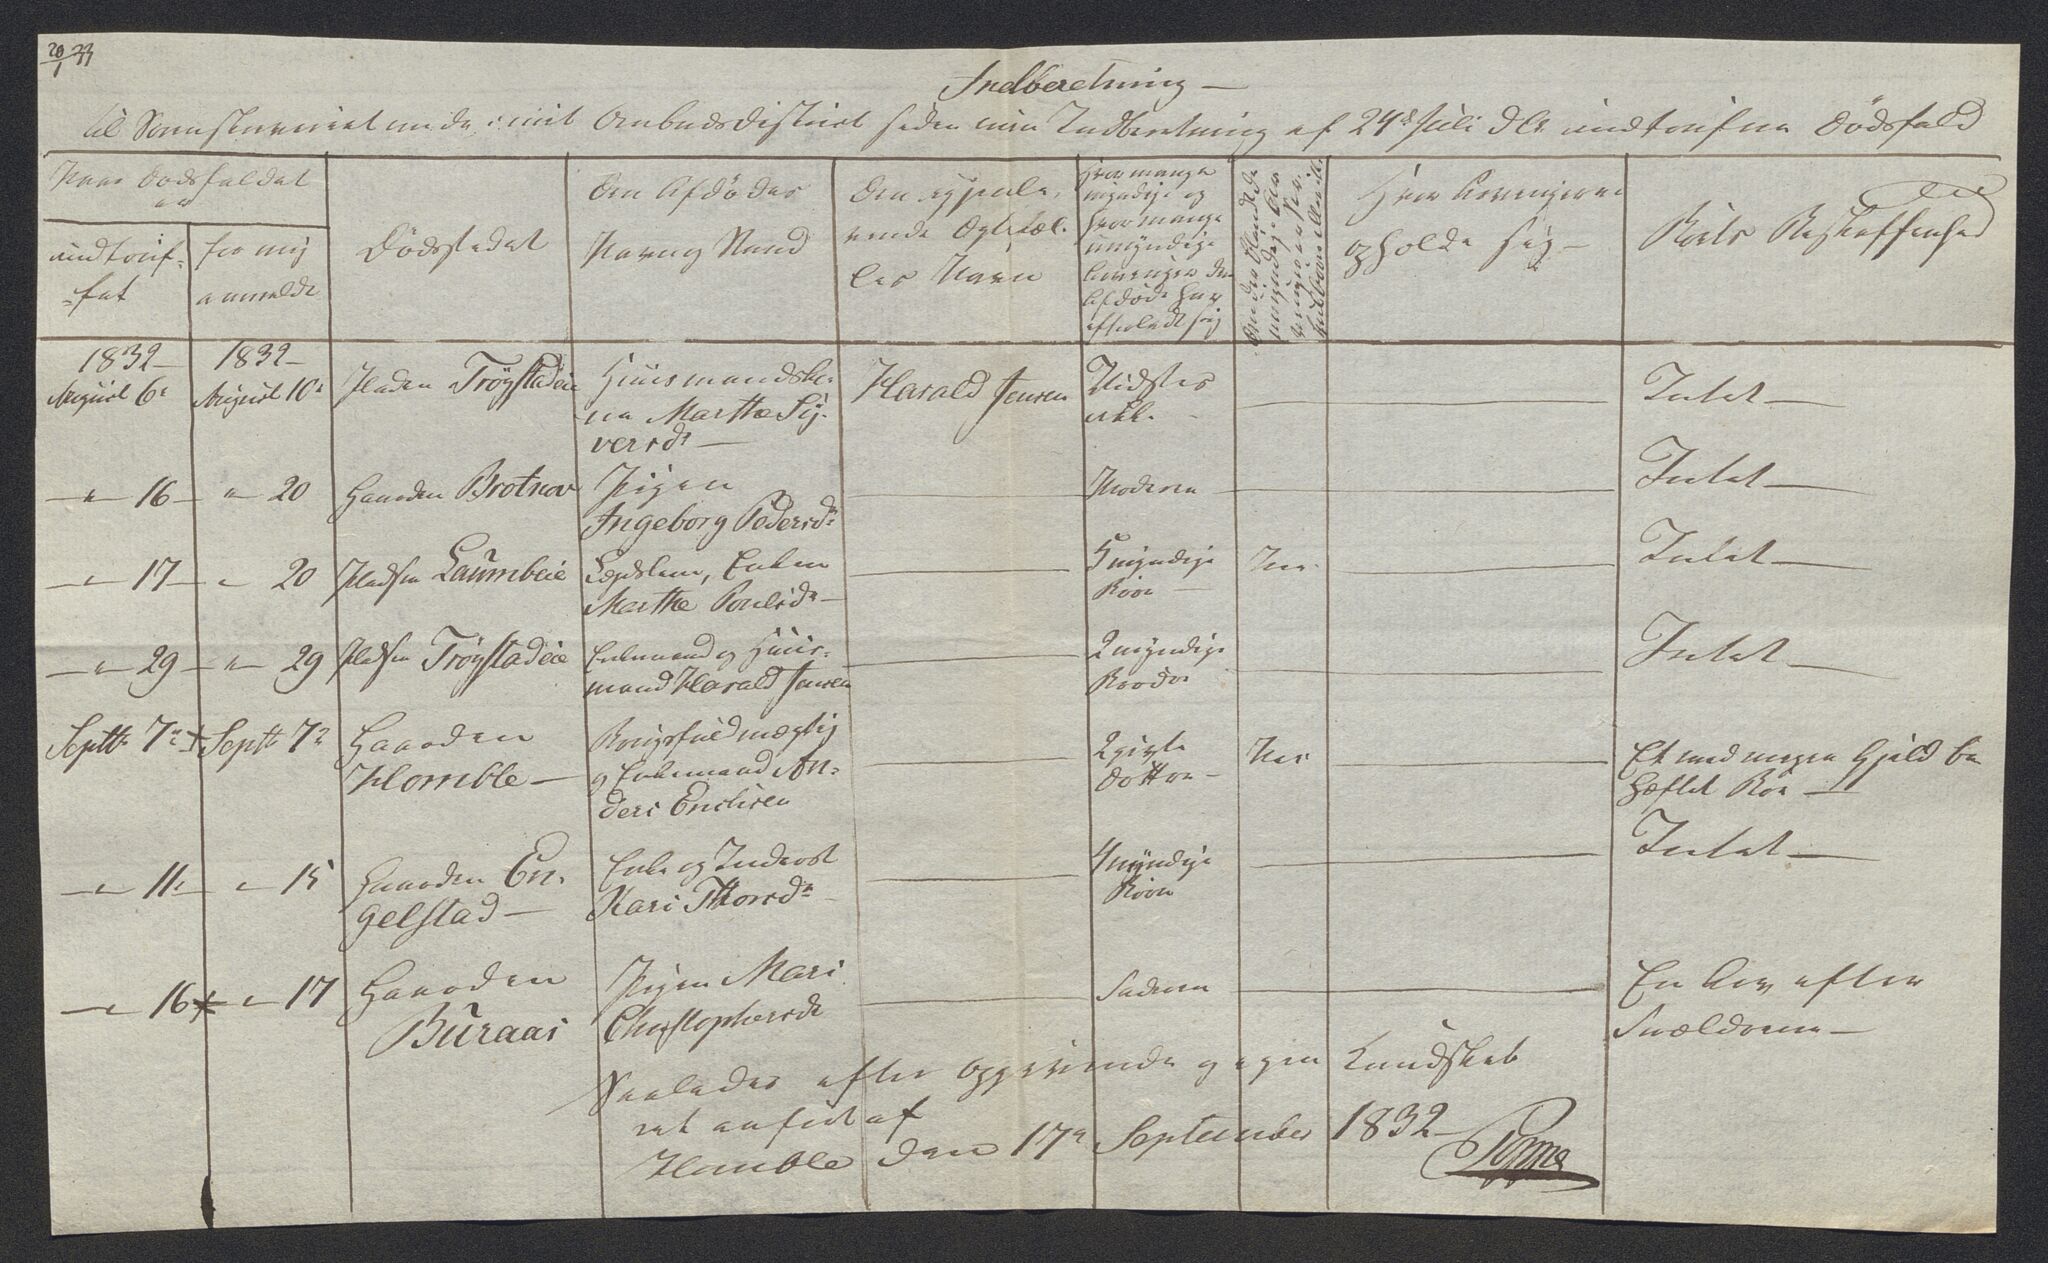 20/1 33
Indberetning —
til Sorenskriveriet om de i mit Ombudsdistrict siden min Indberetning af 24de Juli d. A. indtrufne Dødsfald
Naar Dødsfaldet er
indtruf-
fet
for mig
anmeldt
Dødsstedet
Den Afdødes
Navn og Stand
Den efterle-
vende Ægtefæl-
les Navn
Hvor mange
myndige og
hvor mange
umyndige
Arvinger den
Afdøde har
efterladt sig
Hvor Arvingerne
opholde sig —
Boets Beskaffenhed
1832 — 1832 —
August 6te August 10de Pladsen Trøgstadeie Huusmandsko-
ne Marthe Sy-
versdr — Harald Jensen Vidstes
ikke — Intet —
— " — 16 — " — 20 Gaarden Brotnov Pigen
Ingeborg Pedersdr Moderen Intet —
— " — 17 — " — 20 Pladsen Laumbeie Lægdslem, Enken
Marthe Poulsdr — myndige
Børn — Her Intet —
— " — 29 — " — 29 Pladsen Trøgstadeie Enkemand og Huus-
mand Harald Jensen 2 myndige
Brødre Intet —
Septbr 7de Septbr 7de Gaarden
Homble — Krigsfuldmægtig
og Enkemand An-
ders Erichsen 2 gifte
Døttre — Her Et med megen Gjeld be
hæftet Boe —
— " — 11 — " — 15 Gaarden En-
gelstad — Enke og Inderst
Kari Thorsdr — 4 myndige
Børn Intet —
— " — 16 — " — 17 Gaarden
Buraas Pigen Mari
Christophersdr Faderen En Arv efter
Forældrene —
Saaledes efter Opgivende og egen Kundskab
ret anført af
Homble den 17de September 1832 —